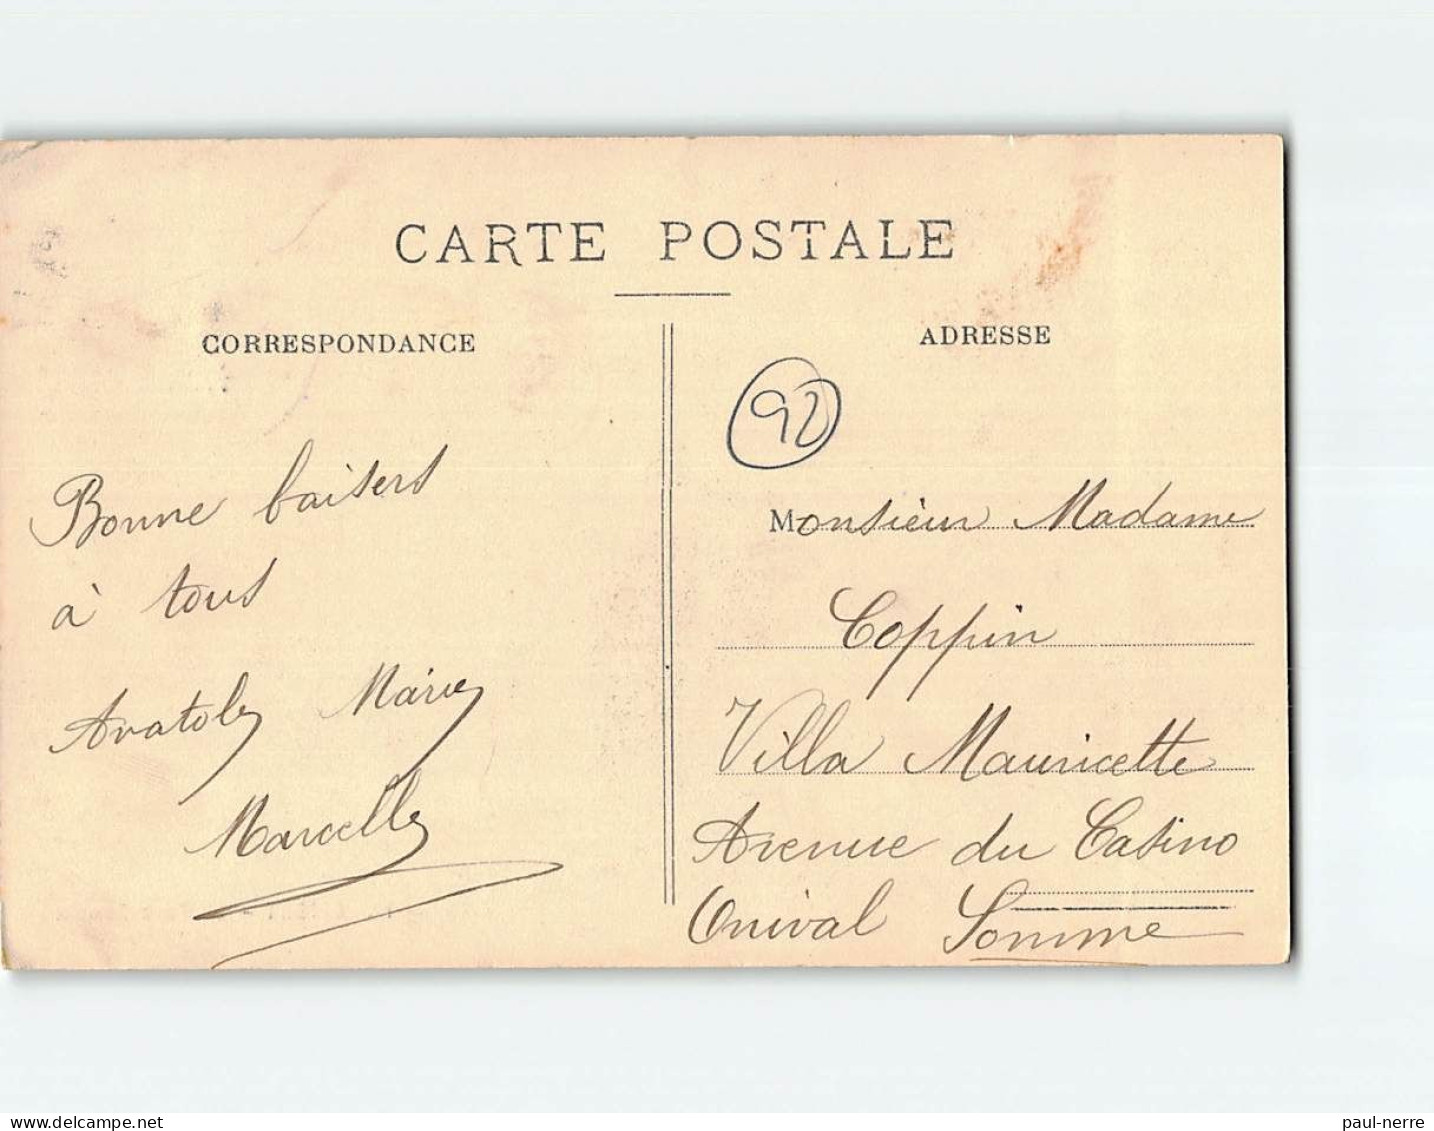 CARTE POSTALE
CORRESPONDANCE
Bonne baisers
à tous
Anatole Marie
Marcelle
ADRESSE
92
Monsieur Madame
Coppin
Villa Mauricette
Avenue du Casino
Onival Somme
delcampe.net
paul-nerre